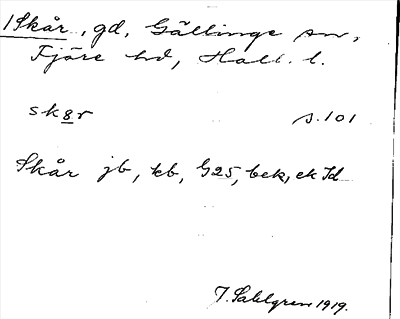 1 Skår, gd, Gällinge sn,
Fjäre hd, Hall. l.
sk8r s. 101
Skår jb, kb, G25, bek, ek Id
J. Sahlgren 1919.